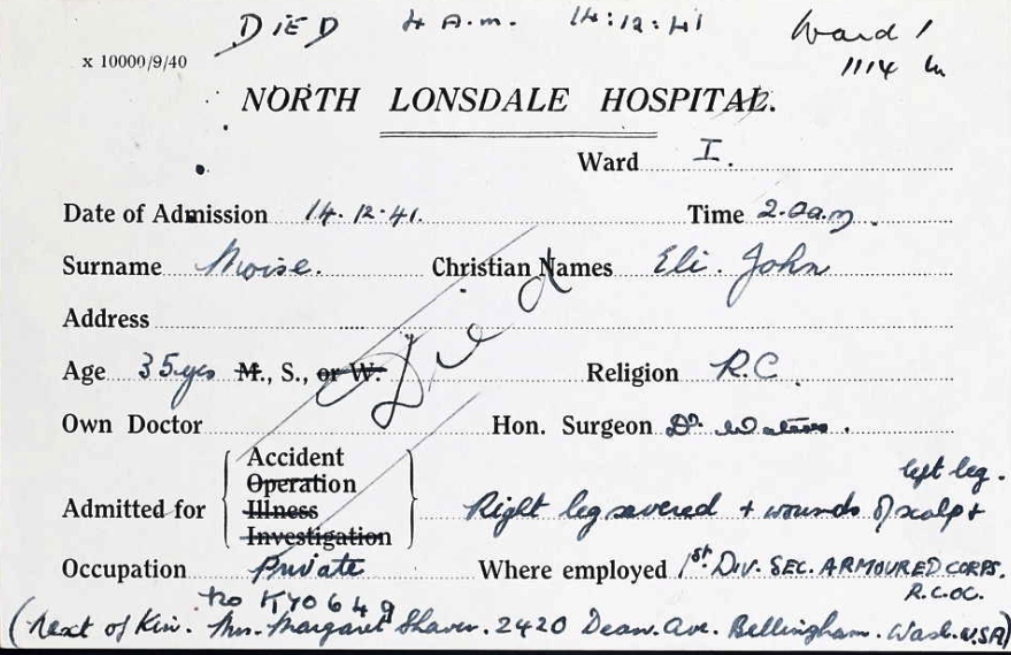 DIED 4 A.m. 14:12:41 Ward 1
x 10000/9/40 1114
NORTH LONSDALE HOSPITAL.
Ward I.
Date of Admission 14.12.41. Time 2.0a.m.
Surname Moise. Christian Names Eli. John
Address
Died
Age 35yrs M., S., or W. Religion R.C.
Own Doctor Hon. Surgeon Dr.
left leg.
Accident
Operation
Admitted for Illness Right leg severed + wounds of scalp +
Investigation
Occupation Private Where employed 1st. DIV. SEC. ARMOURED CORPS.
No K70649 R.C.OC.
(Next of Kin. Mrs. Margaret Shaver. 2420 Dean. Ave. Bellingham. Wash. U.SA)